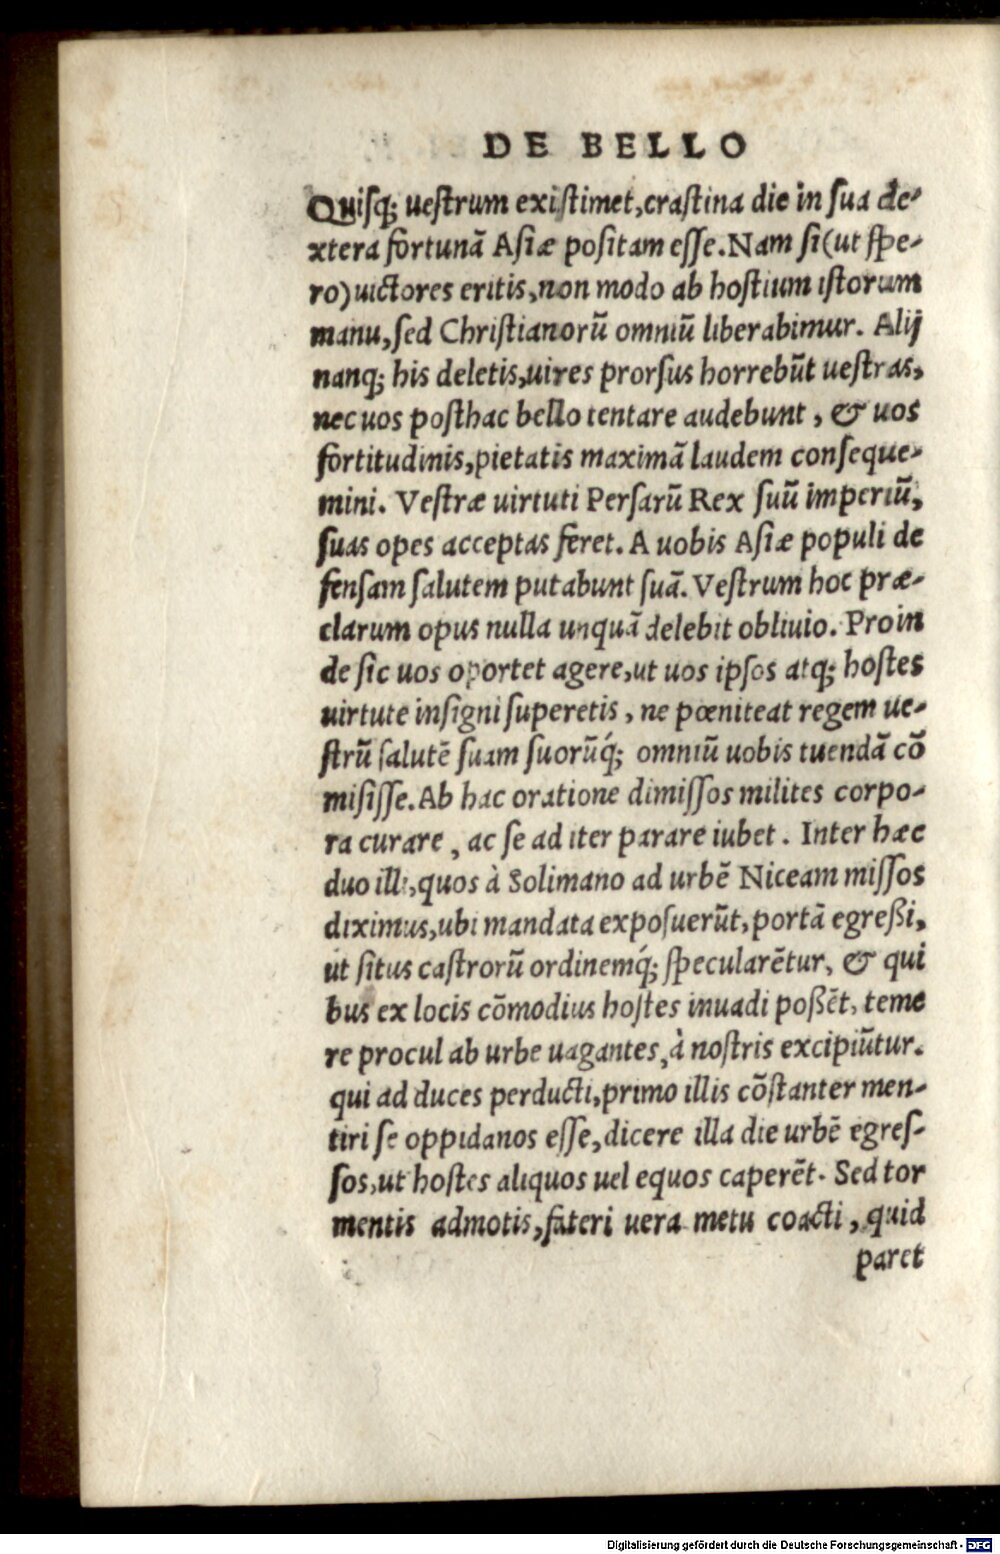 DE BELLO
Quisq; uestrum existimet, crastina die in sua de-
xtera fortunã Asiæ positam esse. Nam si (ut spe-
ro) uictores eritis, non modo ab hostium istorum
manu, sed Christianorũ omniũ liberabimur. Alij
nanq; his deletis, uires prorsus horrebũt uestras,
nec uos posthac bello tentare audebunt, & uos
fortitudinis, pietatis maximã laudem conseque-
mini. Vestræ uirtuti Persarũ Rex suũ imperiũ,
suas opes acceptas feret. A uobis Asiæ populi de
fensam salutem putabunt suã. Vestrum hoc præ-
clarum opus nulla unquã delebit obliuio. Proin
de sic uos oportet agere, ut uos ipsos atq; hostes
uirtute insigni superetis, ne pœniteat regem ue-
strũ salutẽ suam suorũq́; omniũ uobis tuendã cõ
misisse. Ab hac oratione dimissos milites corpo-
ra curare, ac se ad iter parare iubet. Inter hæc
duo illi, quos à Solimano ad urbẽ Niceam missos
diximus, ubi mandata exposuerũt, portã egreßi,
ut situs castrorũ ordinemq́; specularẽtur, & qui
bus ex locis cõmodius hostes inuadi poßẽt, teme
re procul ab urbe uagantes, à nostris excipiũtur.
qui ad duces perducti, primo illis cõstanter men-
tiri se oppidanos esse, dicere illa die urbẽ egres-
sos, ut hostes aliquos uel equos caperẽt. Sed tor
mentis admotis, fateri uera metu coacti, quid
paret
Digitalisierung gefördert durch die Deutsche Forschungsgemeinschaft - DFG